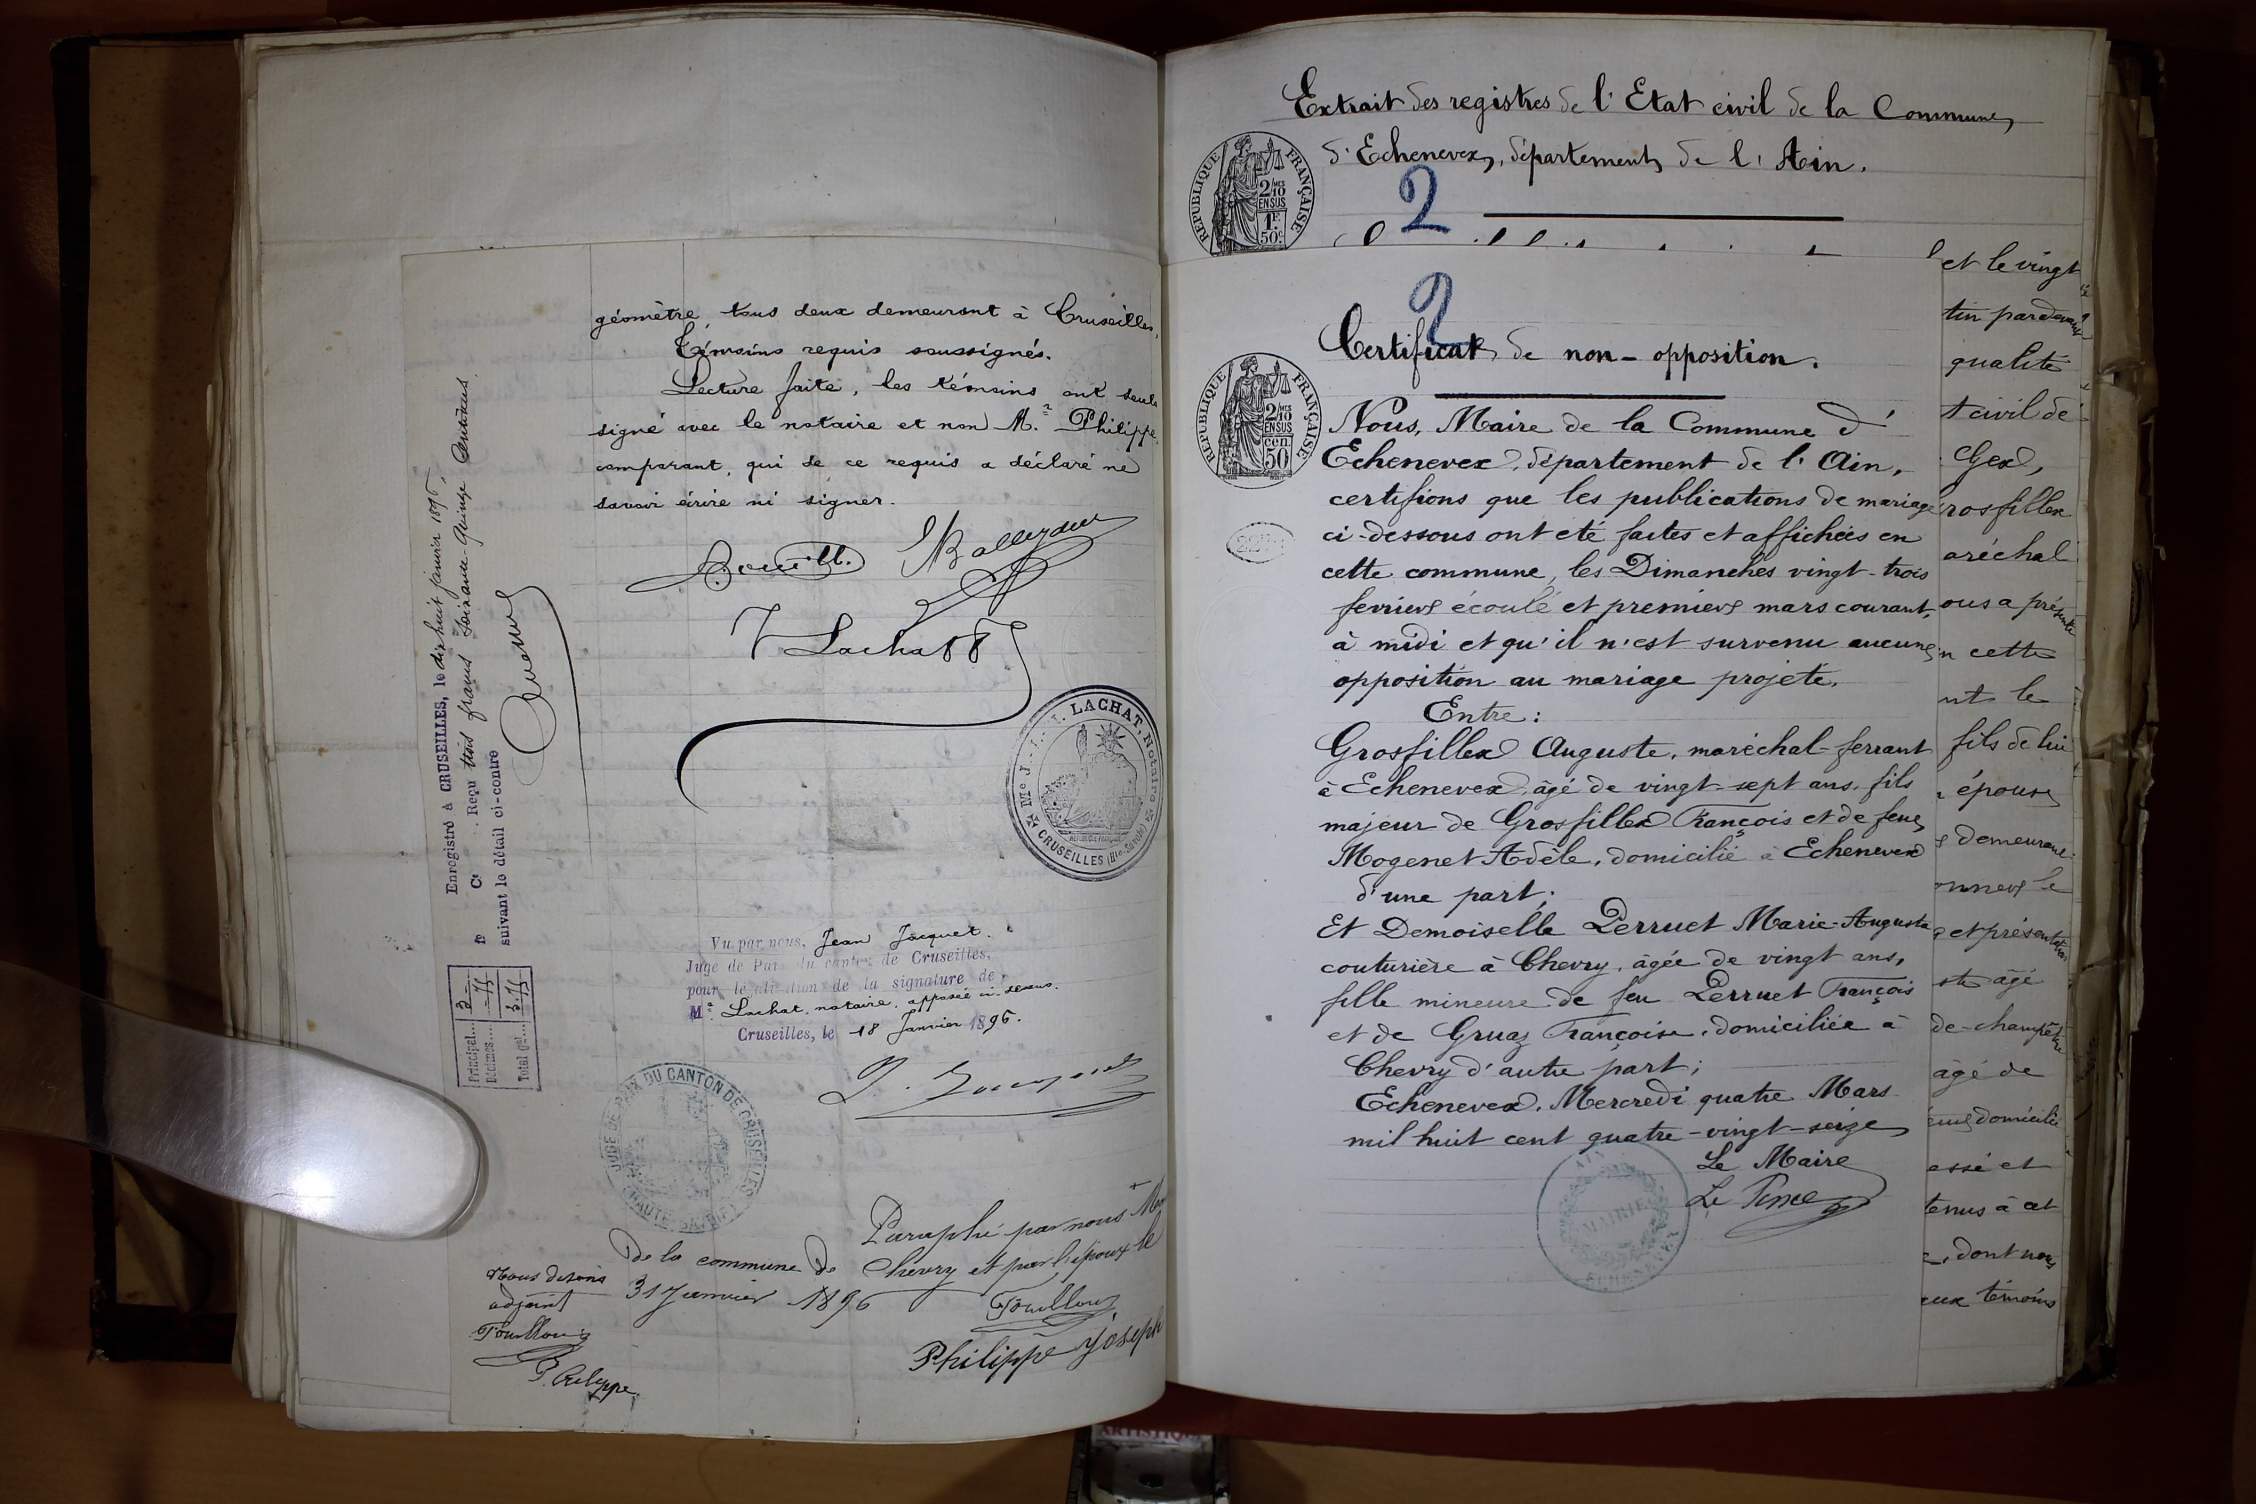 géomètre, tous deux demeurant à Cruseilles,
Témoins requis soussignés.
Lecture faite, les témoins ont seuls
signé avec le notaire et non M. Philippe
comparant, qui de ce requis a déclaré ne
savoir écrire ni signer.
Lachat
Me J. J. LACHAT, Notaire
CRUSEILLES (Hte-Savoie)
Enregistré à CRUSEILLES, le dix huit janvier 1896,
fo Ce . Reçu trois francs soixante-quinze centimes
suivant le détail ci-contre
Principal... 3 -
Décimes... - 75
Total gal... 3.75
Vu par nous, Jean Jacquet.
Juge de Paix du canton de Cruseilles,
pour légalisation de la signature de
Me Lachat, notaire, apposée ci-dessus.
Cruseilles, le 18 Janvier 1896.
JUGE DE PAIX DU CANTON DE CRUSEILLES
(HAUTE-SAVOIE)
Paraphé par nous
de la commune de Chevry et par l'époux le
31 Janvier 1896
Nous disons
adjoint
Philippe Joseph
Extrait des registres de l'Etat civil de la Commune
d'Echenevex, département de l'Ain.
RÉPUBLIQUE FRANÇAISE
2/10 MES
EN SUS
1F.
50c
2
2
Certificat de non-opposition.
RÉPUBLIQUE FRANÇAISE
2/10 MES
EN SUS
cen.
50
Nous, Maire de la Commune d'
Echenevex, département de l'Ain,
certifions que les publications de mariage
ci-dessous ont été faites et affichées en
cette commune, les Dimanches vingt-trois
fevrier écoulé et premier mars courant,
à midi et qu'il n'est survenu aucune
opposition au mariage projeté.
Entre:
Grosfillex Auguste, maréchal-ferrant
à Echenevex, âgé de vingt-sept ans, fils
majeur de Grosfillex François et de feue
Mogenet Adèle, domicilié à Echenevex
d'une part;
Et Demoiselle Perruet Marie-Augusta
couturière à Chevry, âgée de vingt ans,
fille mineure de feu Perruet François
et de Gruaz Françoise, domiciliée à
Chevry d'autre part;
Echenevex, Mercredi quatre Mars
mil huit cent quatre-vingt-seize
Le Maire
MAIRIE
et le vingt
tin pardevant
qualité
t civil de
Gex,
rosfillex
aréchal
ous a présenté
n cette
nt le
fils de lui
épouse
demeurant
onner le
et présentation
ste âgé
de-champêtre
âgé de
domicilié
essé et
tenus à cet
, dont nous
eux témoins